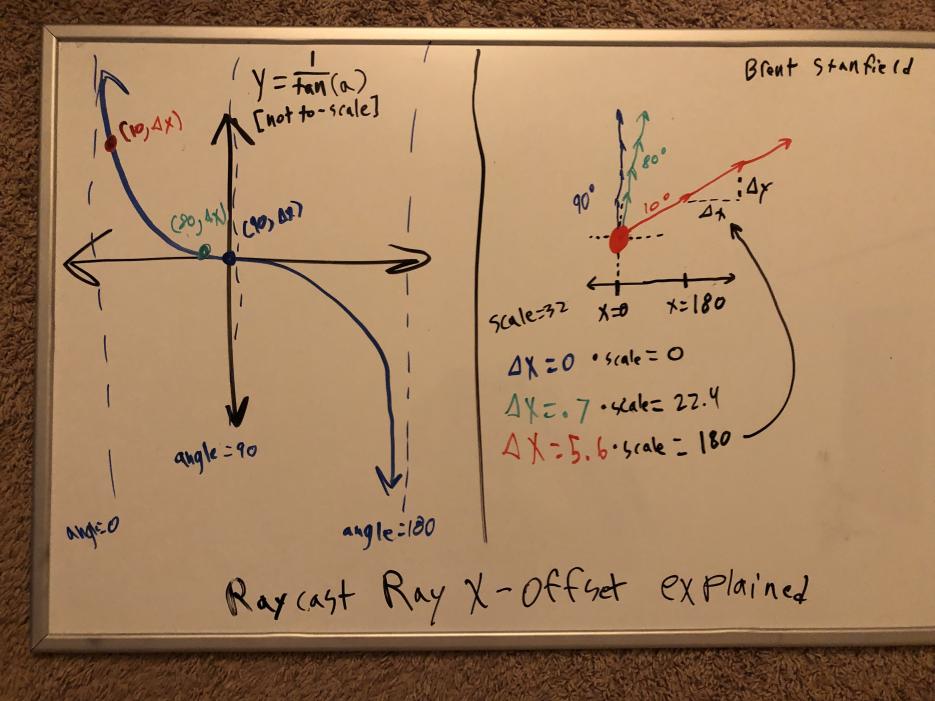 Y = 1/tan(a)
[not to-scale]
(10, Δx)
(80, Δx)
(90, Δx)
angle=90
angle=0
angle=180
Brent Stanfield
90°
80°
10°
Δy
Δx
scale=32
x=0
x=180
Δx=0 · scale = 0
Δx=.7 · scale= 22.4
Δx=5.6 · scale = 180
Raycast Ray X-offset explained